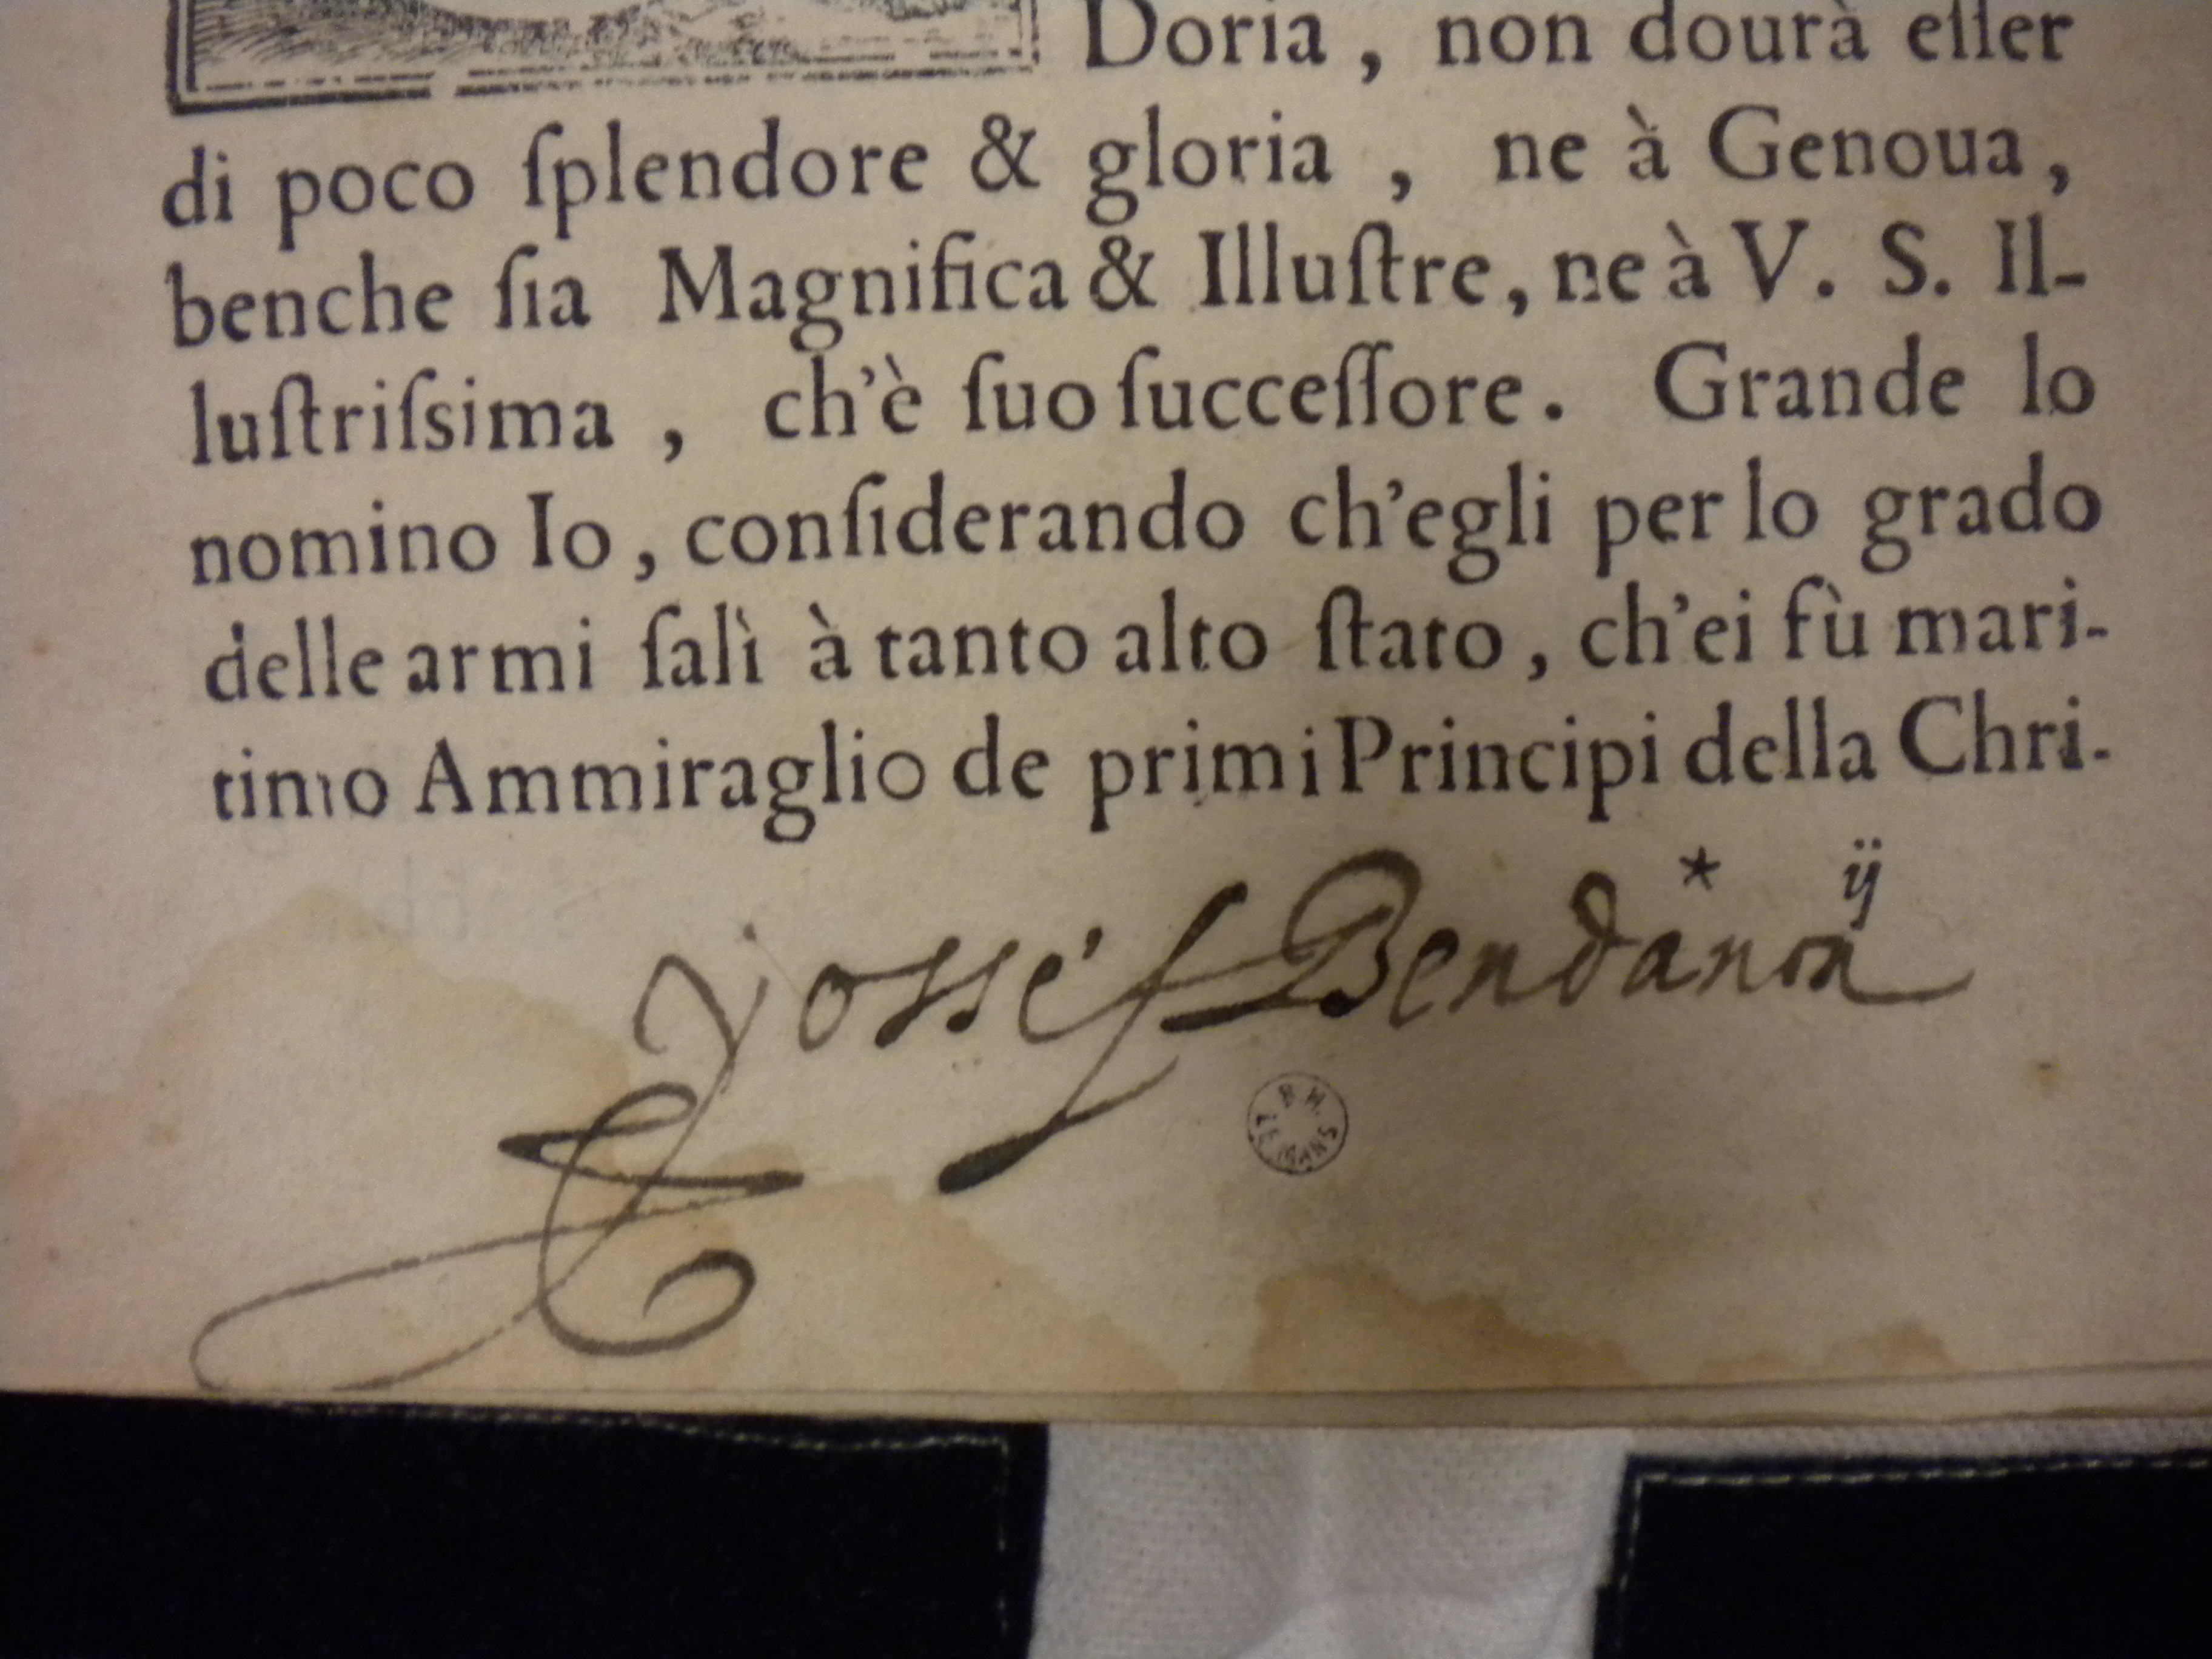 Doria, non dourà eſſer
di poco ſplendore & gloria, ne à Genoua,
benche ſia Magnifica & Illuſtre, ne à V. S. Il-
luſtriſsima, ch'è ſuo ſucceſſore. Grande lo
nomino Io, conſiderando ch'egli per lo grado
delle armi ſalì à tanto alto ſtato, ch'ei fù mari-
timo Ammiraglio de primi Principi della Chri-
* ij
Josséf Bendanon
B. M. LE MANS